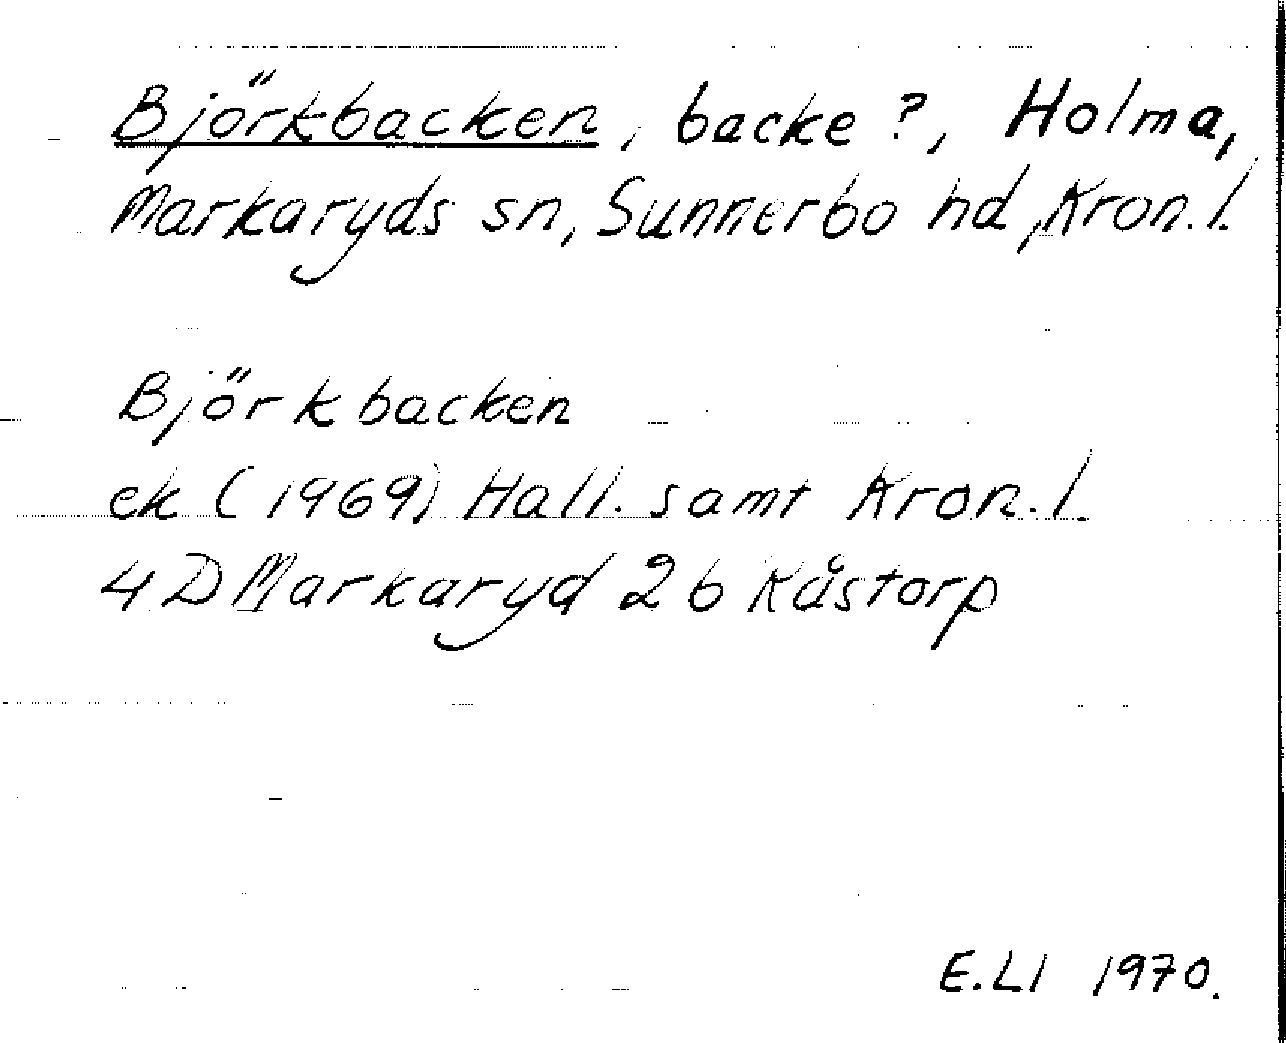 Björkbacken, backe?, Holma,
Markaryds sn, Sunnerbo hd, Kron.l.
Björkbacken
ek (1969) Hall. samt Kron.l.
4 D Markaryd 2b Kåstorp
E.Ll 1970.